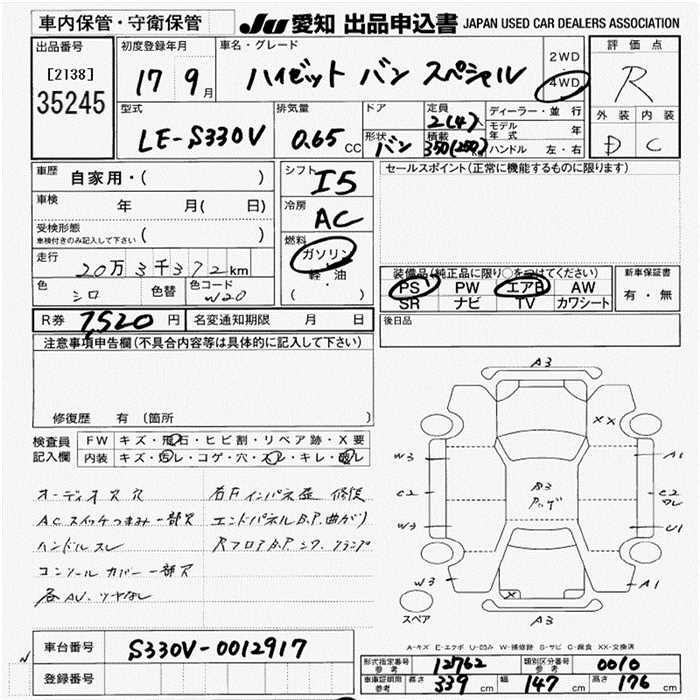 車内保管・守衛保管
JU 愛知 出品申込書 JAPAN USED CAR DEALERS ASSOCIATION
出品番号
[2138]
35245
初度登録年月
17 9月
車名・グレード
ハイゼット バン スペシャル
2WD
4WD
評価点
R
外装 内装
D C
型式
LE-S330V
排気量
0.65 CC
ドア
形状
バン
定員
2(4)人
積載
350(250)kg
ディーラー・並行
モデル年式 年
ハンドル 左・右
車歴
自家用・( )
車検
年 月( 日)
受検形態
車検付きのみ記入して下さい ( )
走行
20万3千372km
色
シロ
色替
色コード
W20
シフト
I5
冷房
AC
燃料
ガソリン
軽・油
( )
セールスポイント(正常に機能するものに限ります)
装備品(純正品に限り○をつけてください)
PS PW エアB AW
SR ナビ TV カワシート
新車保証書
有・無
R券 7,520円 名変通知期限 月 日
後日品
注意事項申告欄(不具合内容等は具体的に記入して下さい)
修復歴 有 (箇所
検査員記入欄
FW キズ・飛石・ヒビ割・リペア跡・X要
内装 キズ・汚レ・コゲ・穴・スレ・キレ・破レ
オーディオス穴
ACスイッチつまみ一部欠
ハンドルスレ
コンソールカバー一部欠
各AU、ツヤなし
右Fインパネ歪 修復
エンドパネルB.P.曲がり
RフロアB.P.シワ、クランプ
A3
XX
W3
A1
C2
B3
C2
ワレ
W3
U1
W3
A1
X
スペア
A3
A-キズ E-エクボ U-凹み W-補修跡 S-サビ C-腐食 XX-交換済
車台番号 S330V-0012917
登録番号
N
形式指定番号 参考 12762
類別区分番号 参考 0010
車庫証明用 参考 長さ 339 cm 幅 147 cm 高さ 176 cm